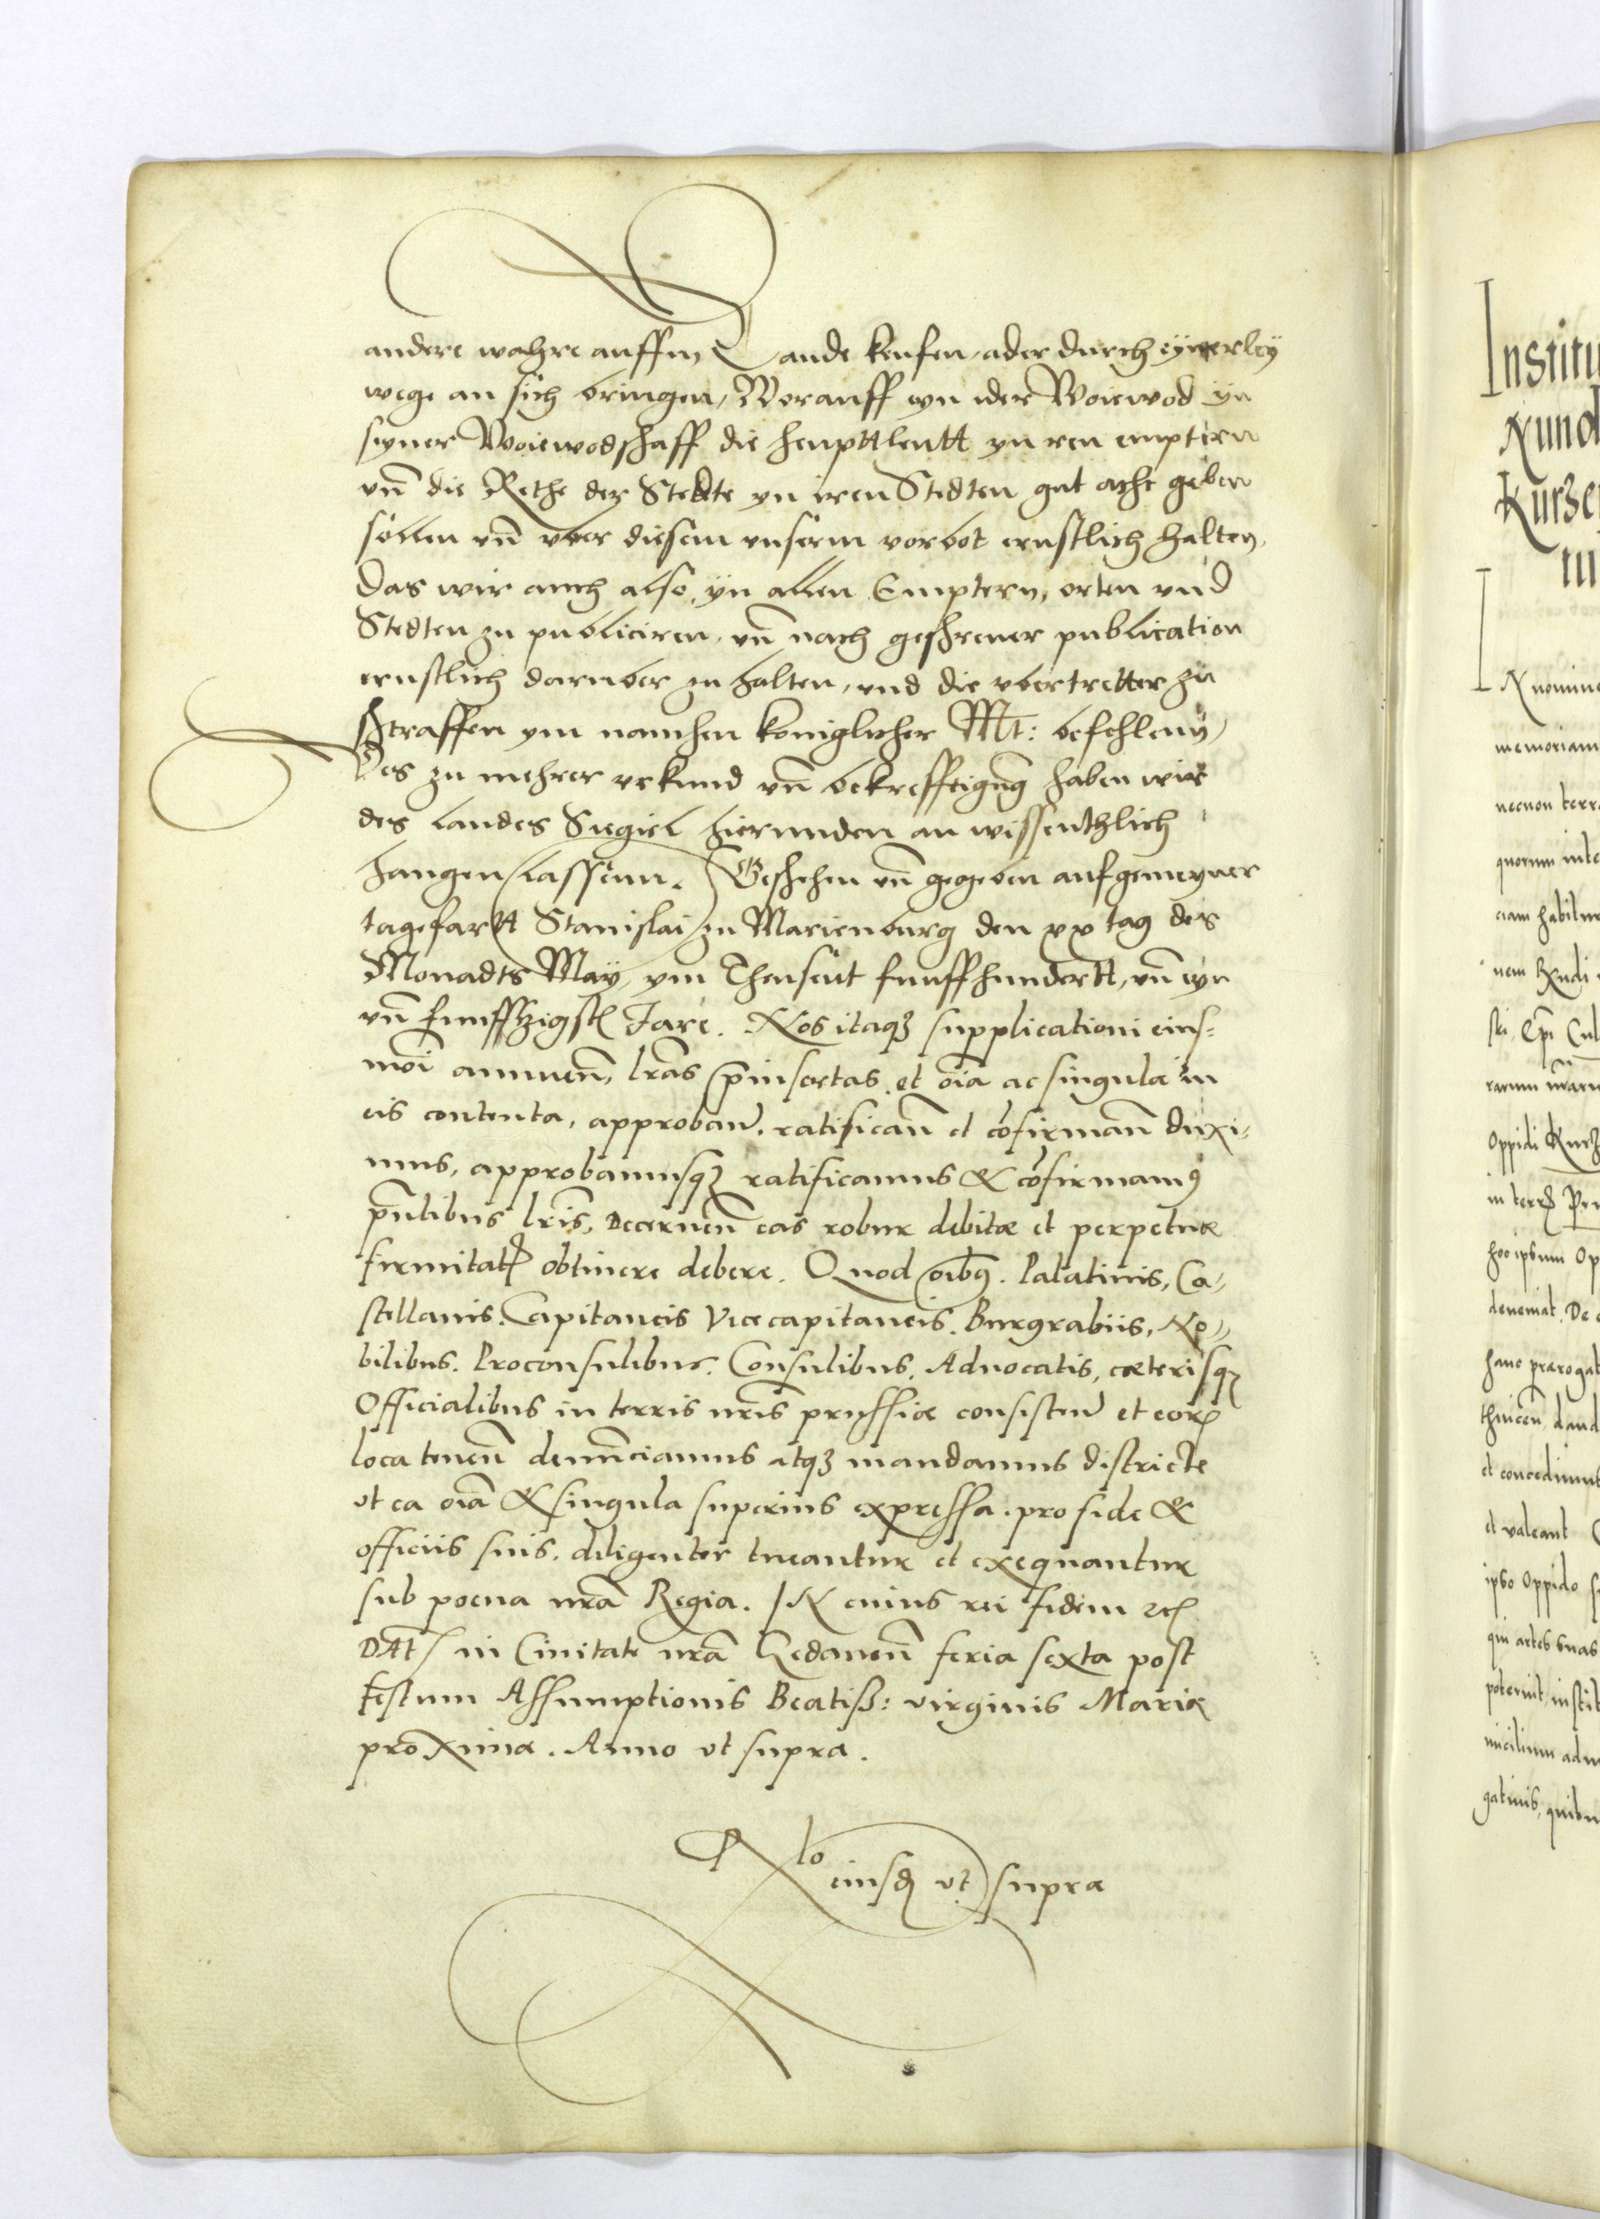 andere wahre auffm Lande keufen, ader durch eynerley
wege an sich bringen, Worauff eyn ider Woiewod yn
seyner Woiewodschaff die heupttleutt yn ren emptern
vn̄ die Rethe der Stedte yn iren Stedten gut acht geben
sollen vn̄ vber diesem vnserm vorbot ernstlich halten,
Das wir auch also, yn allen Emptern, orten vnd
Stedten zu publiciren, vn̄ nach geschener publication
ernstlich daruber zu halten, vnd die vbertretter zu
straffen ym namhen koniglicher Mt: befehlenn,
Des zu mehrer vrkund vn̄ bekrefftigūg haben wir
des Landes Siegiel hierunden an wissenthlich
hangen lassenn. Geschehn vn̄ gegeben auf gemeyner
tagefartt Stanislai zu Marienburg den xx tag des
Monadts May, ym Thausent funffhundertt, vn̄ eyn
vn̄ funffzigst Jare. Nos itaqꝫ supplicationi eius-
mōi annuen̄, lr̄as p̄insertas et oīa ac singula in
eis contenta, approban̄, ratifican̄ et cōfirman̄ duxi-
mus, approbamusqꝫ ratificamus & cōfirmamꝰ
p̄ntibus lr̄is, Decernen̄ eas robur debitæ et perpetuæ
firmitatꝭ obtinere debere. Quod oībꝰ. Palatinis, Ca-
stellanis. Capitaneis Vicecapitaneis. Burgrabiis, No-
bilibus. Proconsulibus. Consulibus. Aduocatis, cæterisqꝫ
Officialibus in terris nr̄is prussiæ consisten̄ et eorꝝ
loca tenen̄ denūciamus atqꝫ mandamus districte
vt ea oīa & singula superius expressa. pro fide &
officiis suis. diligenter tueantur et exequantur
sub poena nr̄a Regia. IN cuius rei fidem ꝛcꝭ
DAtꝭ in Ciuitate nr̄a Gedanen̄ feria sexta post
festum Assumptionis Beatiß: virginis Mariæ
proxima. Anno vt supra.
Rlo
eiusdꝭ vt supra
Institu
Nund
Kurze
IN nomine
memoriam
necnon terra
quorum inte
ciam habitur
nem Rndi
sti, Ep̄i Cul
rarum nr̄aru
Oppidi Kurz
in terrꝭ Pru
hoc ipsum Op
deveniat. De
hanc prærogat
thuicen̄ dand
et concedimus
et valeant
ipso Oppido
qui artes suas
poterint, instit
micilium adm
gatiuis, quibu